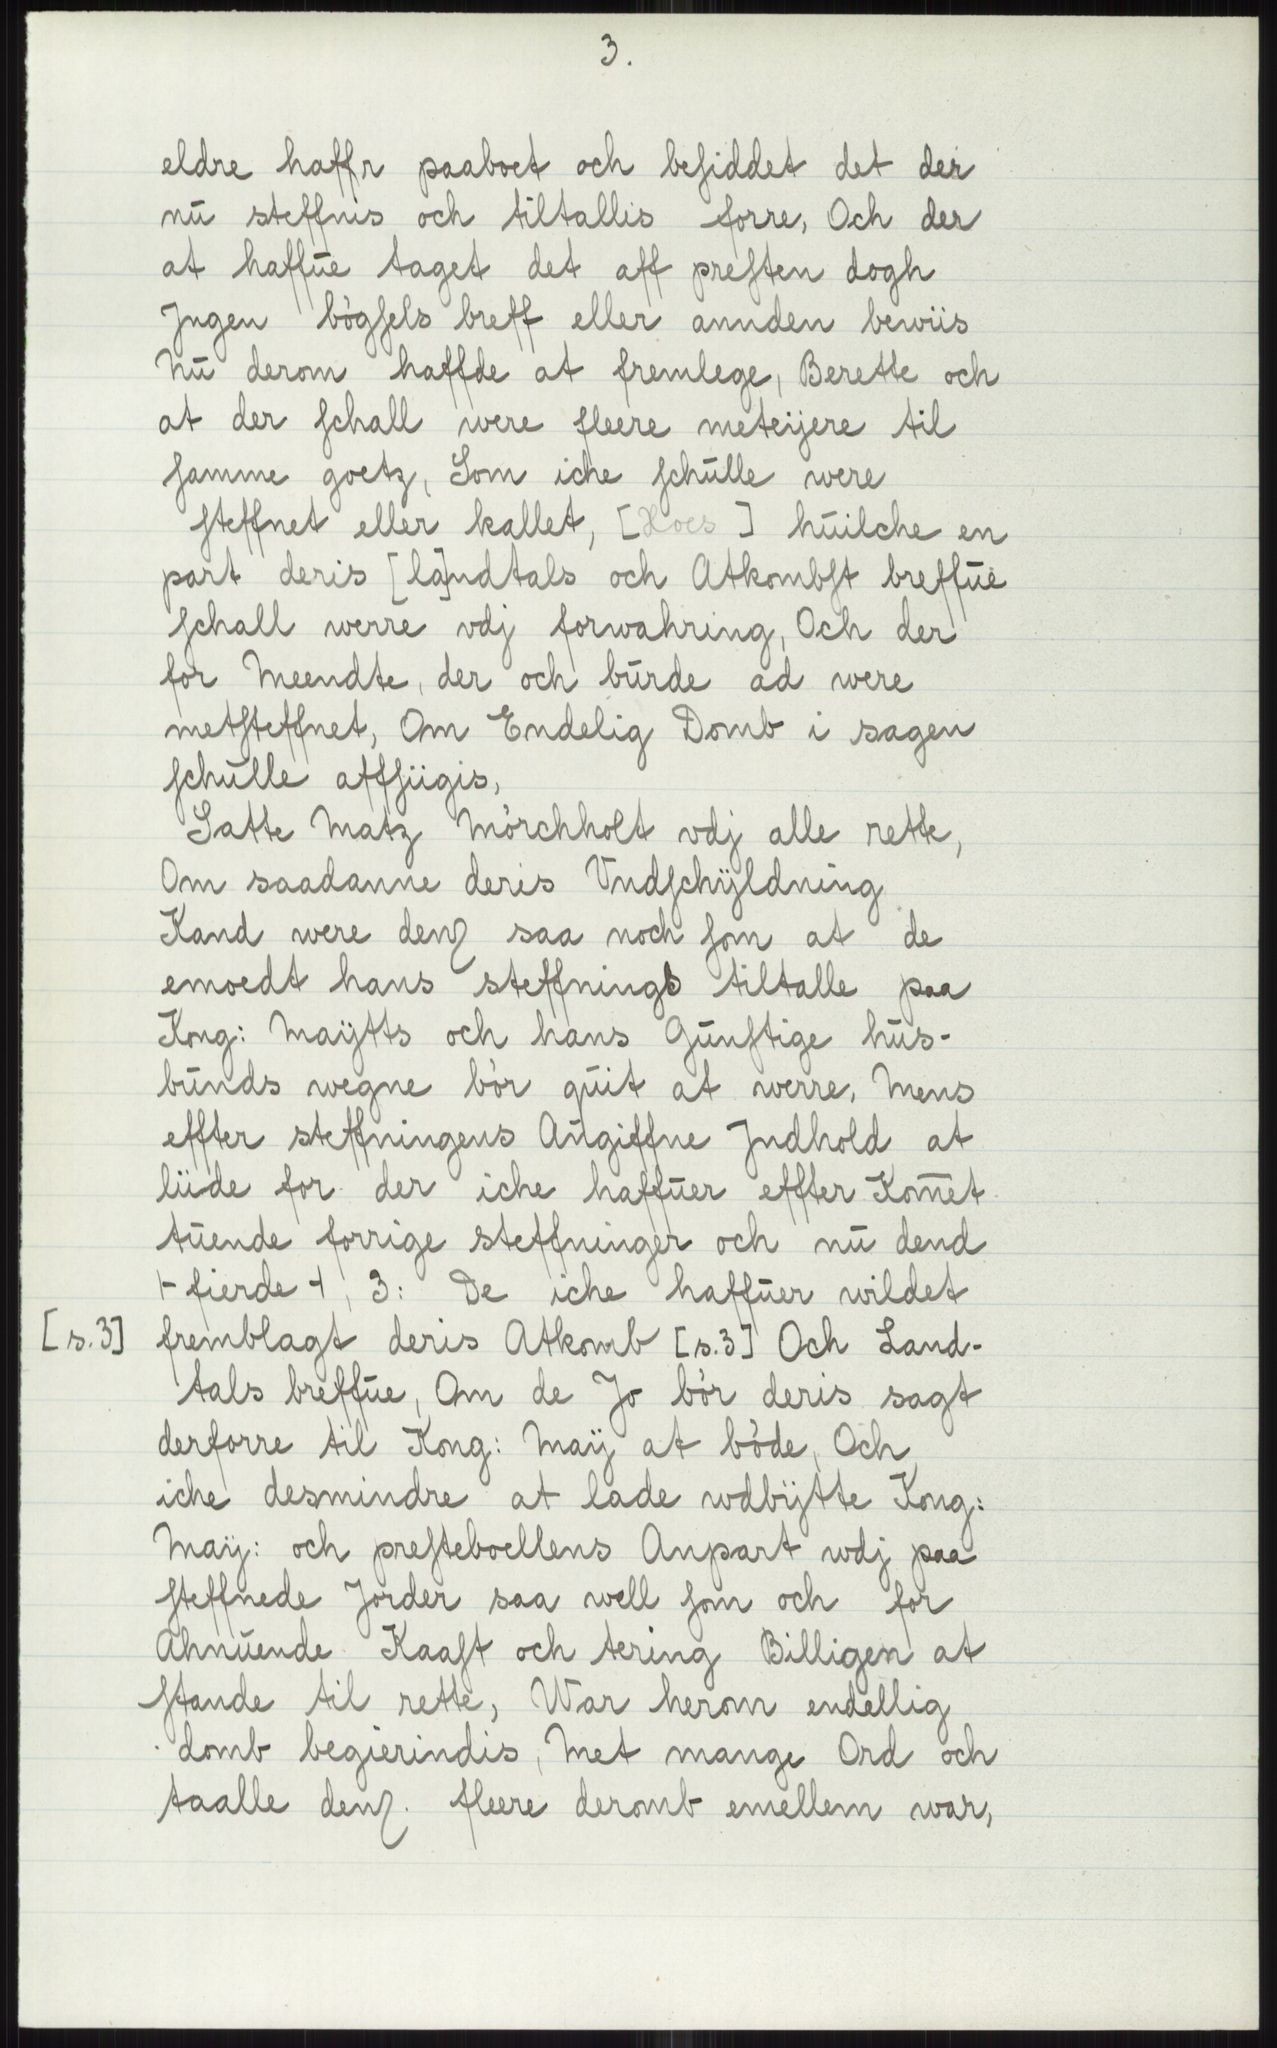 3.
eldre haffr paaboet och besiddet det der
nū steffnis och tiltallis forre, Och der
at haffūe taget det aff presten dogh
Jngen bögsels breff eller annden bewiis
Nū derom haffde at fremlege, Berette och
at der schall were fleere meteijere til
samme goetz, Som iche schūlle were
steffnet eller kallet, [Hoes] hūilche en
part deris [la]ndtals och Atkombst breffūe
schall werre vdj forwahring, Och der
for Meendte, der och būrde ad were
metsteffnet, Om Endelig Domb i sagen
schūlle affsiigis,
Satte Matz Mörchholt vdj alle rette,
Om saadanne deris Vndschÿldning
Kand were denȝ saa noch som at de
emoedt hans steffnings tiltalle paa
Kong: Maÿtts och hans Gūnstige hūs-
būnds wegne bör qūit at werre, Mens
effter steffningens Angiffne Jndhold at
liide for der iche haffūer effter Kom̄et
tūende forrige steffninger och nū dend
⊢fierde⊣, 3: De iche haffūer wildet
[s.3] fremblagt deris Atkomb [s.3] Och Land-
tals breffūe, Om de Jo bör deris sagt
derforre til Kong: Maÿ at böde, Och
iche desmindre at lade wdbÿtte Kong:
Maÿ: och presteboellens Anpart wdj paa
steffnede Jorder saa well som och for
Ahnūende Kaast och tering Billigen at
stande til rette, War herom endellig
domb begierindis, Met mange Ord och
taalle denȝ. fleere deromb emellem war,